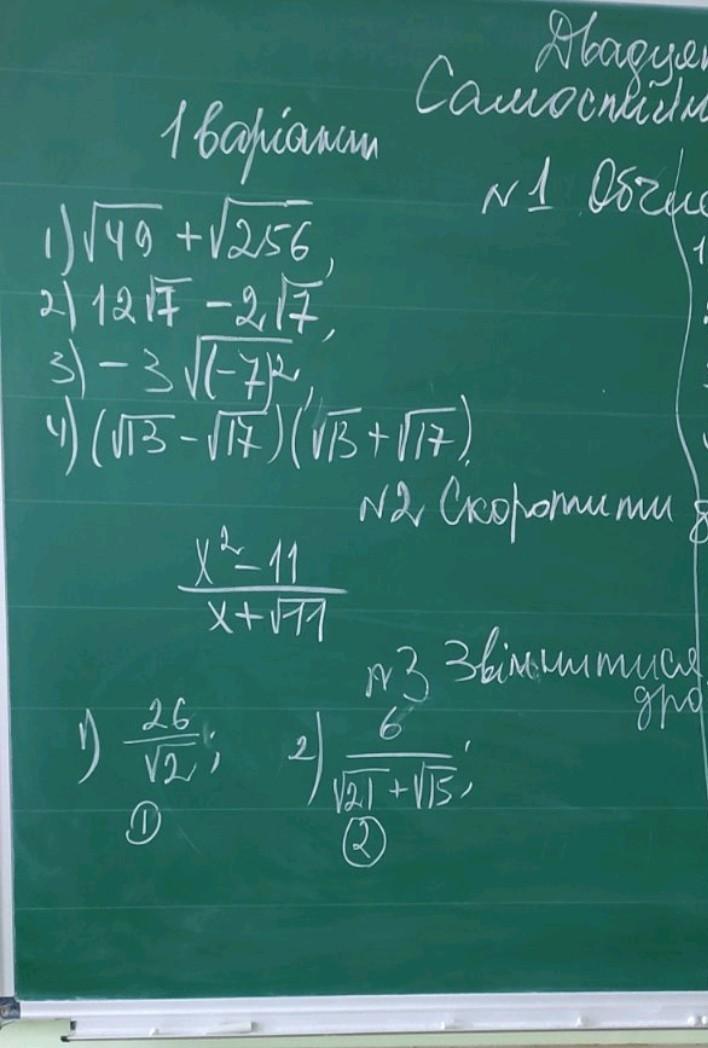 Двадця
Самостійн
1 варіант
№1 Обчис
1) √49 + √256,
2) 12√7 - 2√7,
3) - 3 √(-7)²,
4) (√13 - √17)(√13 + √17).
№2 Скоротити
x² - 11
x + √11
№3 Звільнитися
дро
1) 26/√2; 2) 6/(√21 + √15);
① ②